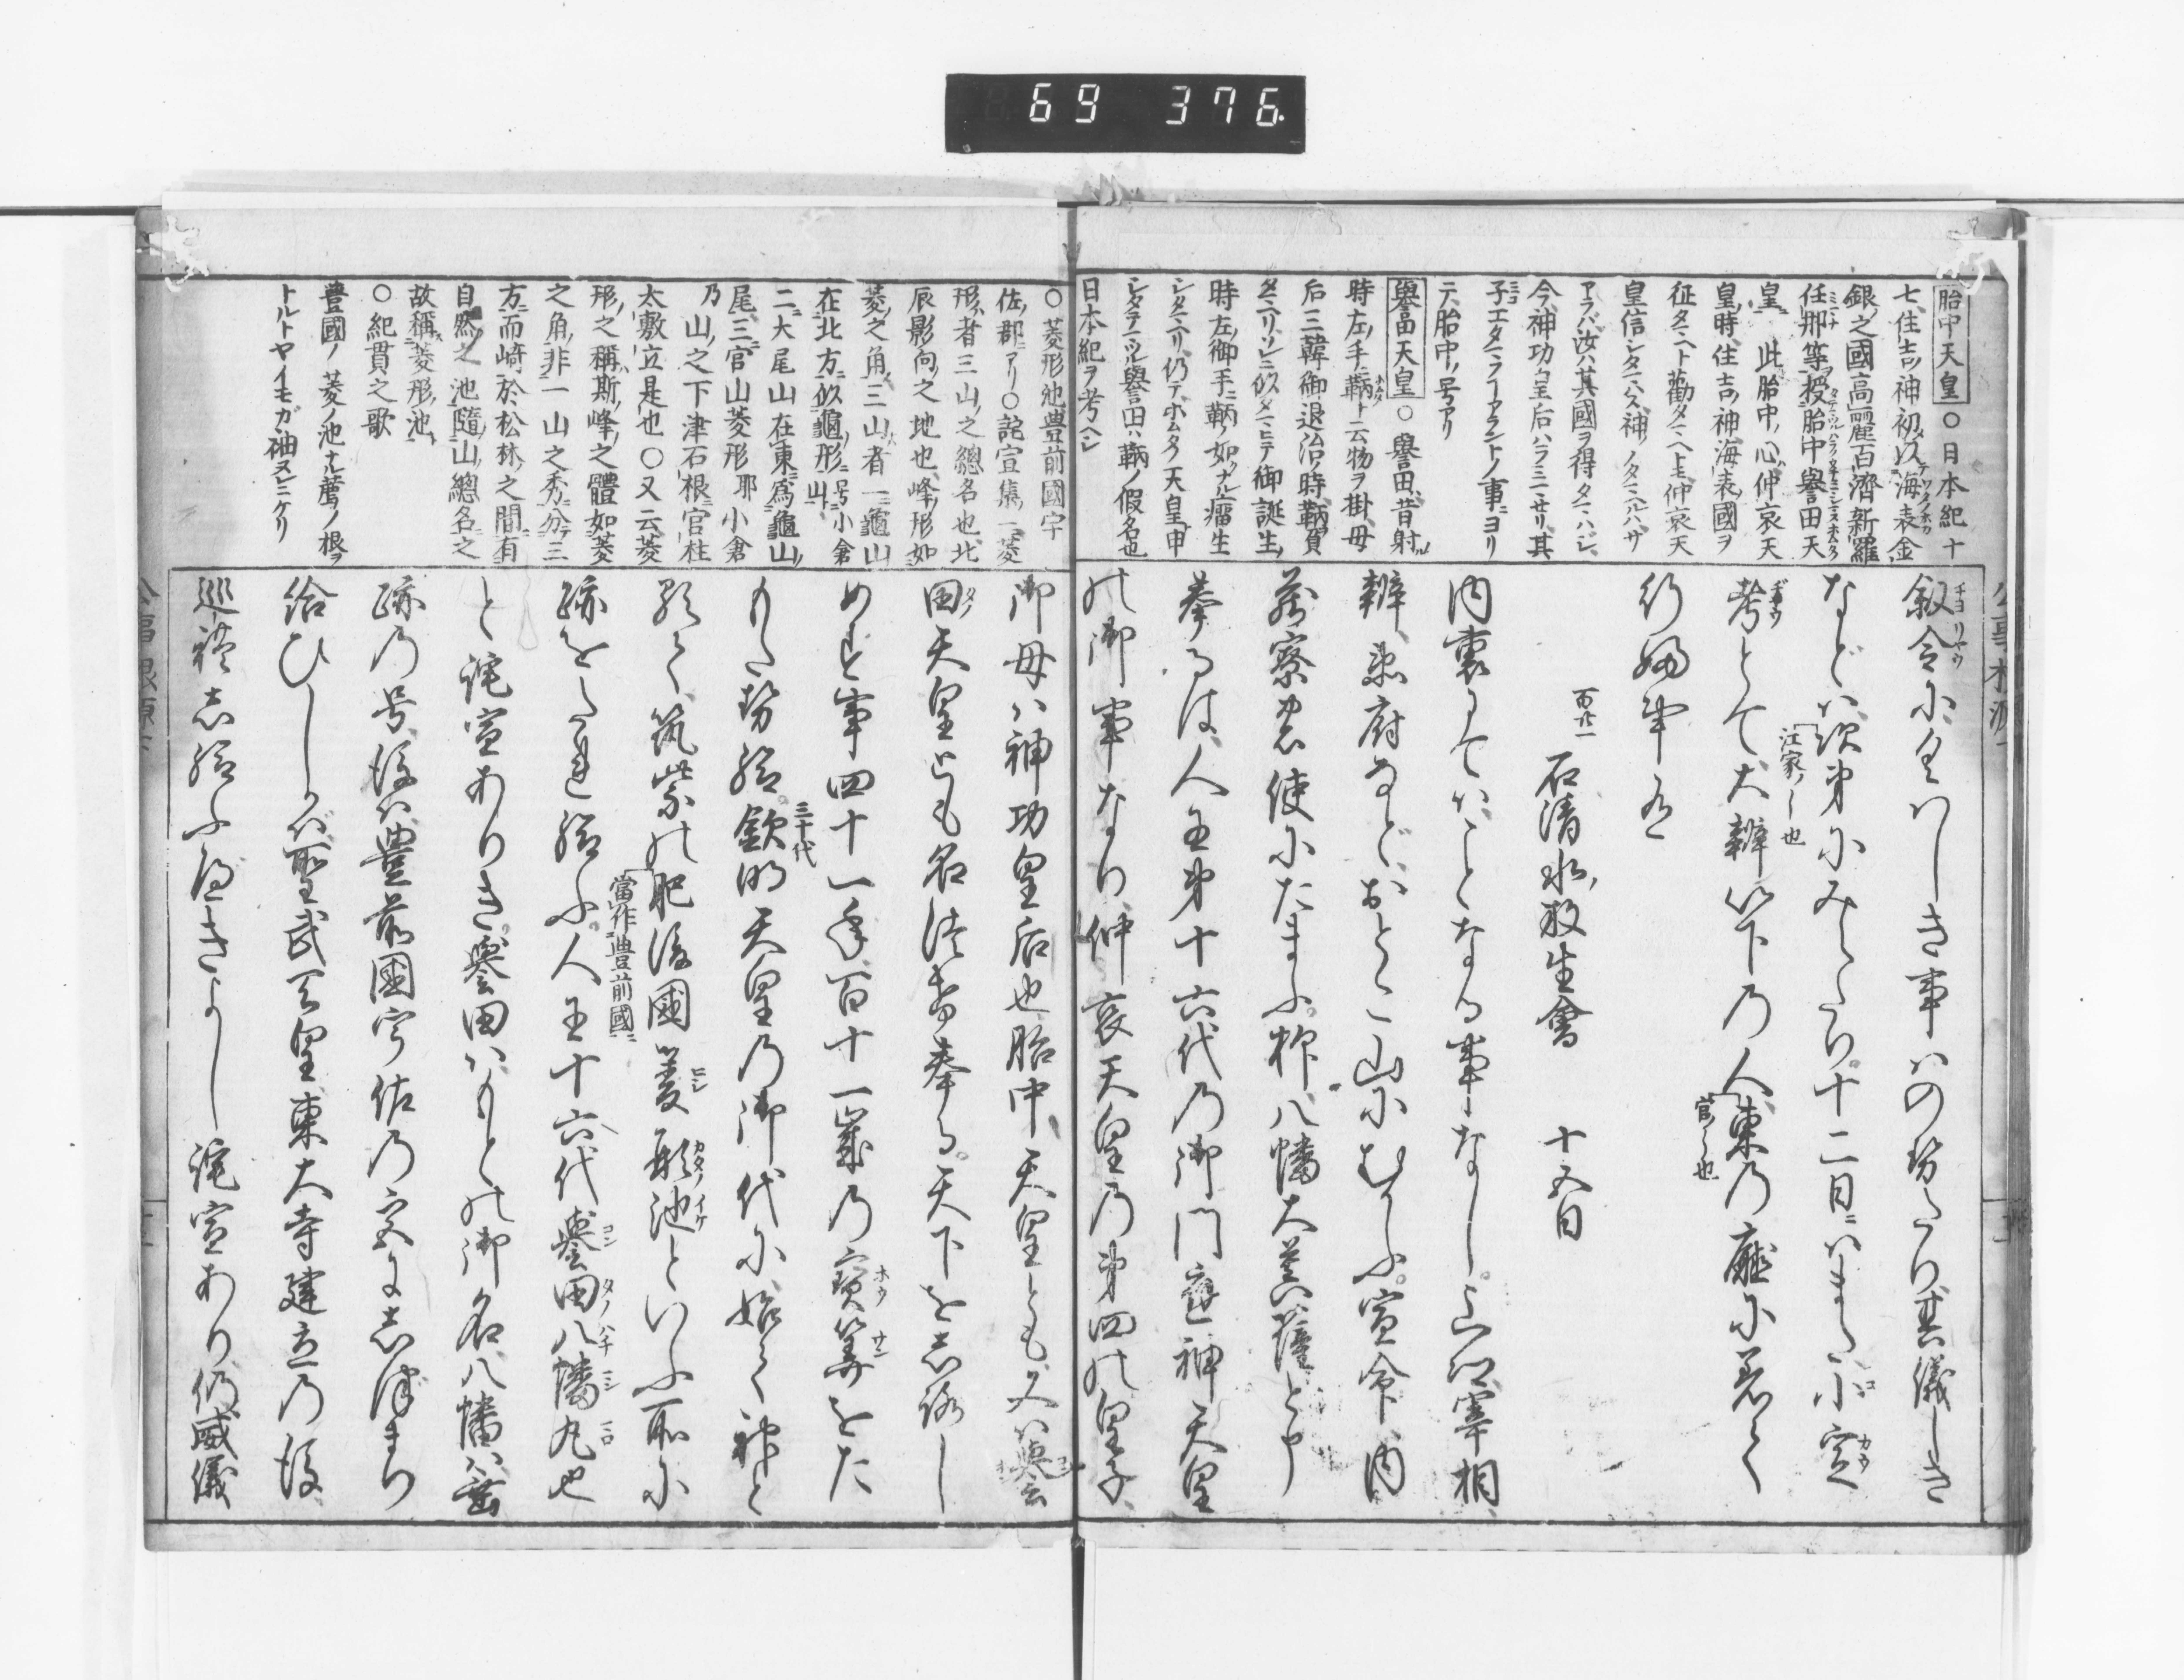 69 376
胎中天皇○日本紀十
七、住吉神初以海表金
銀之國高麗百濟新羅
任那等授胎中譽田天
皇此胎中ノ心ハ仲哀天
皇ノ時、住吉ノ神海表ノ國ヲ
征タマヘト勸タマヘトモ仲哀天
皇信シタマハズ神ノノタマハルハサ
アラバ汝ハ其國ヲ得タマハジ、
今神功皇后ハラミマセリ、其
子エタマフコトアラントノ事ニヨリ
テ、胎中ノ号アリ
譽田天皇○譽田、昔射ル
時左ノ手ニ鞆ト云物ヲ掛、母
后三韓御退治ノ時鞆ヲ負
タマヘリ、ソレニ似タマヒテ御誕生ノ
時左ノ御手ニ鞆ノ如クナル瘤生
シタマヘリ、仍テホムタノ天皇ト申
シタテマツル、譽田ハ鞆ノ假名也
日本紀ヲ考ヘシ
叙令に久しき事はのせたり其儀しき
などは次第にみえたり。十二日にはまた小定
考とて大辨以下の人東の廳に着て
行ふ事有
江家ノ〱也
官〱也
百八十一 石清水放生會 十五日
内裏にてはことなる事なし。上卿宰相
辨、衆府など、おとこ山にむかふ。宣命、内
蔵寮者使にたまふ。抑八幡大菩薩と申
奉るは、人王第十六代の御門應神天皇
の御事なり、仲哀天皇の第四の皇子、
○菱形池豊前國宇
佐ノ郡ニアリ○託宣集一菱
形ハ者三山之總名也、北
辰影向之地也、峰ノ形如
菱之角、三山者一龜山
在北方似龜形号小倉山
二大尾山在東爲龜山ノ
尾、三宮山菱形耶小倉
乃山ノ之下津石根ニ宮柱
太敷立是也○又云菱
形ノ之稱、斯峰之體如菱
之角、非一山之秀、分三
方而﨑於松林之間有
自然之池、隨山總名之
故稱菱形池
○紀貫之歌
豊國ノ菱ノ池ナル菱ノ根ヲ
トルトヤイモガ袖ヌレニケリ
御母は神功皇后也胎中天皇とも又は譽
田天皇とも名付奉る。天下をしろし
めす事四十一年、百十一歳の寶算をた
もち給。欽明天皇の御代に、始て神と
顕て、筑紫の肥後國菱形池といふ所に
跡をたれ給ふ。人王十六代譽田八幡丸也
と託宣ありき。譽田はもとの御名八幡は垂
跡の号、後は豊前國宇佐の宮にしづまり
給ひしかば聖武天皇東大寺建立の後、
巡礼し給ふべきよし託宣あり仍威儀
三十代
當作豊前國